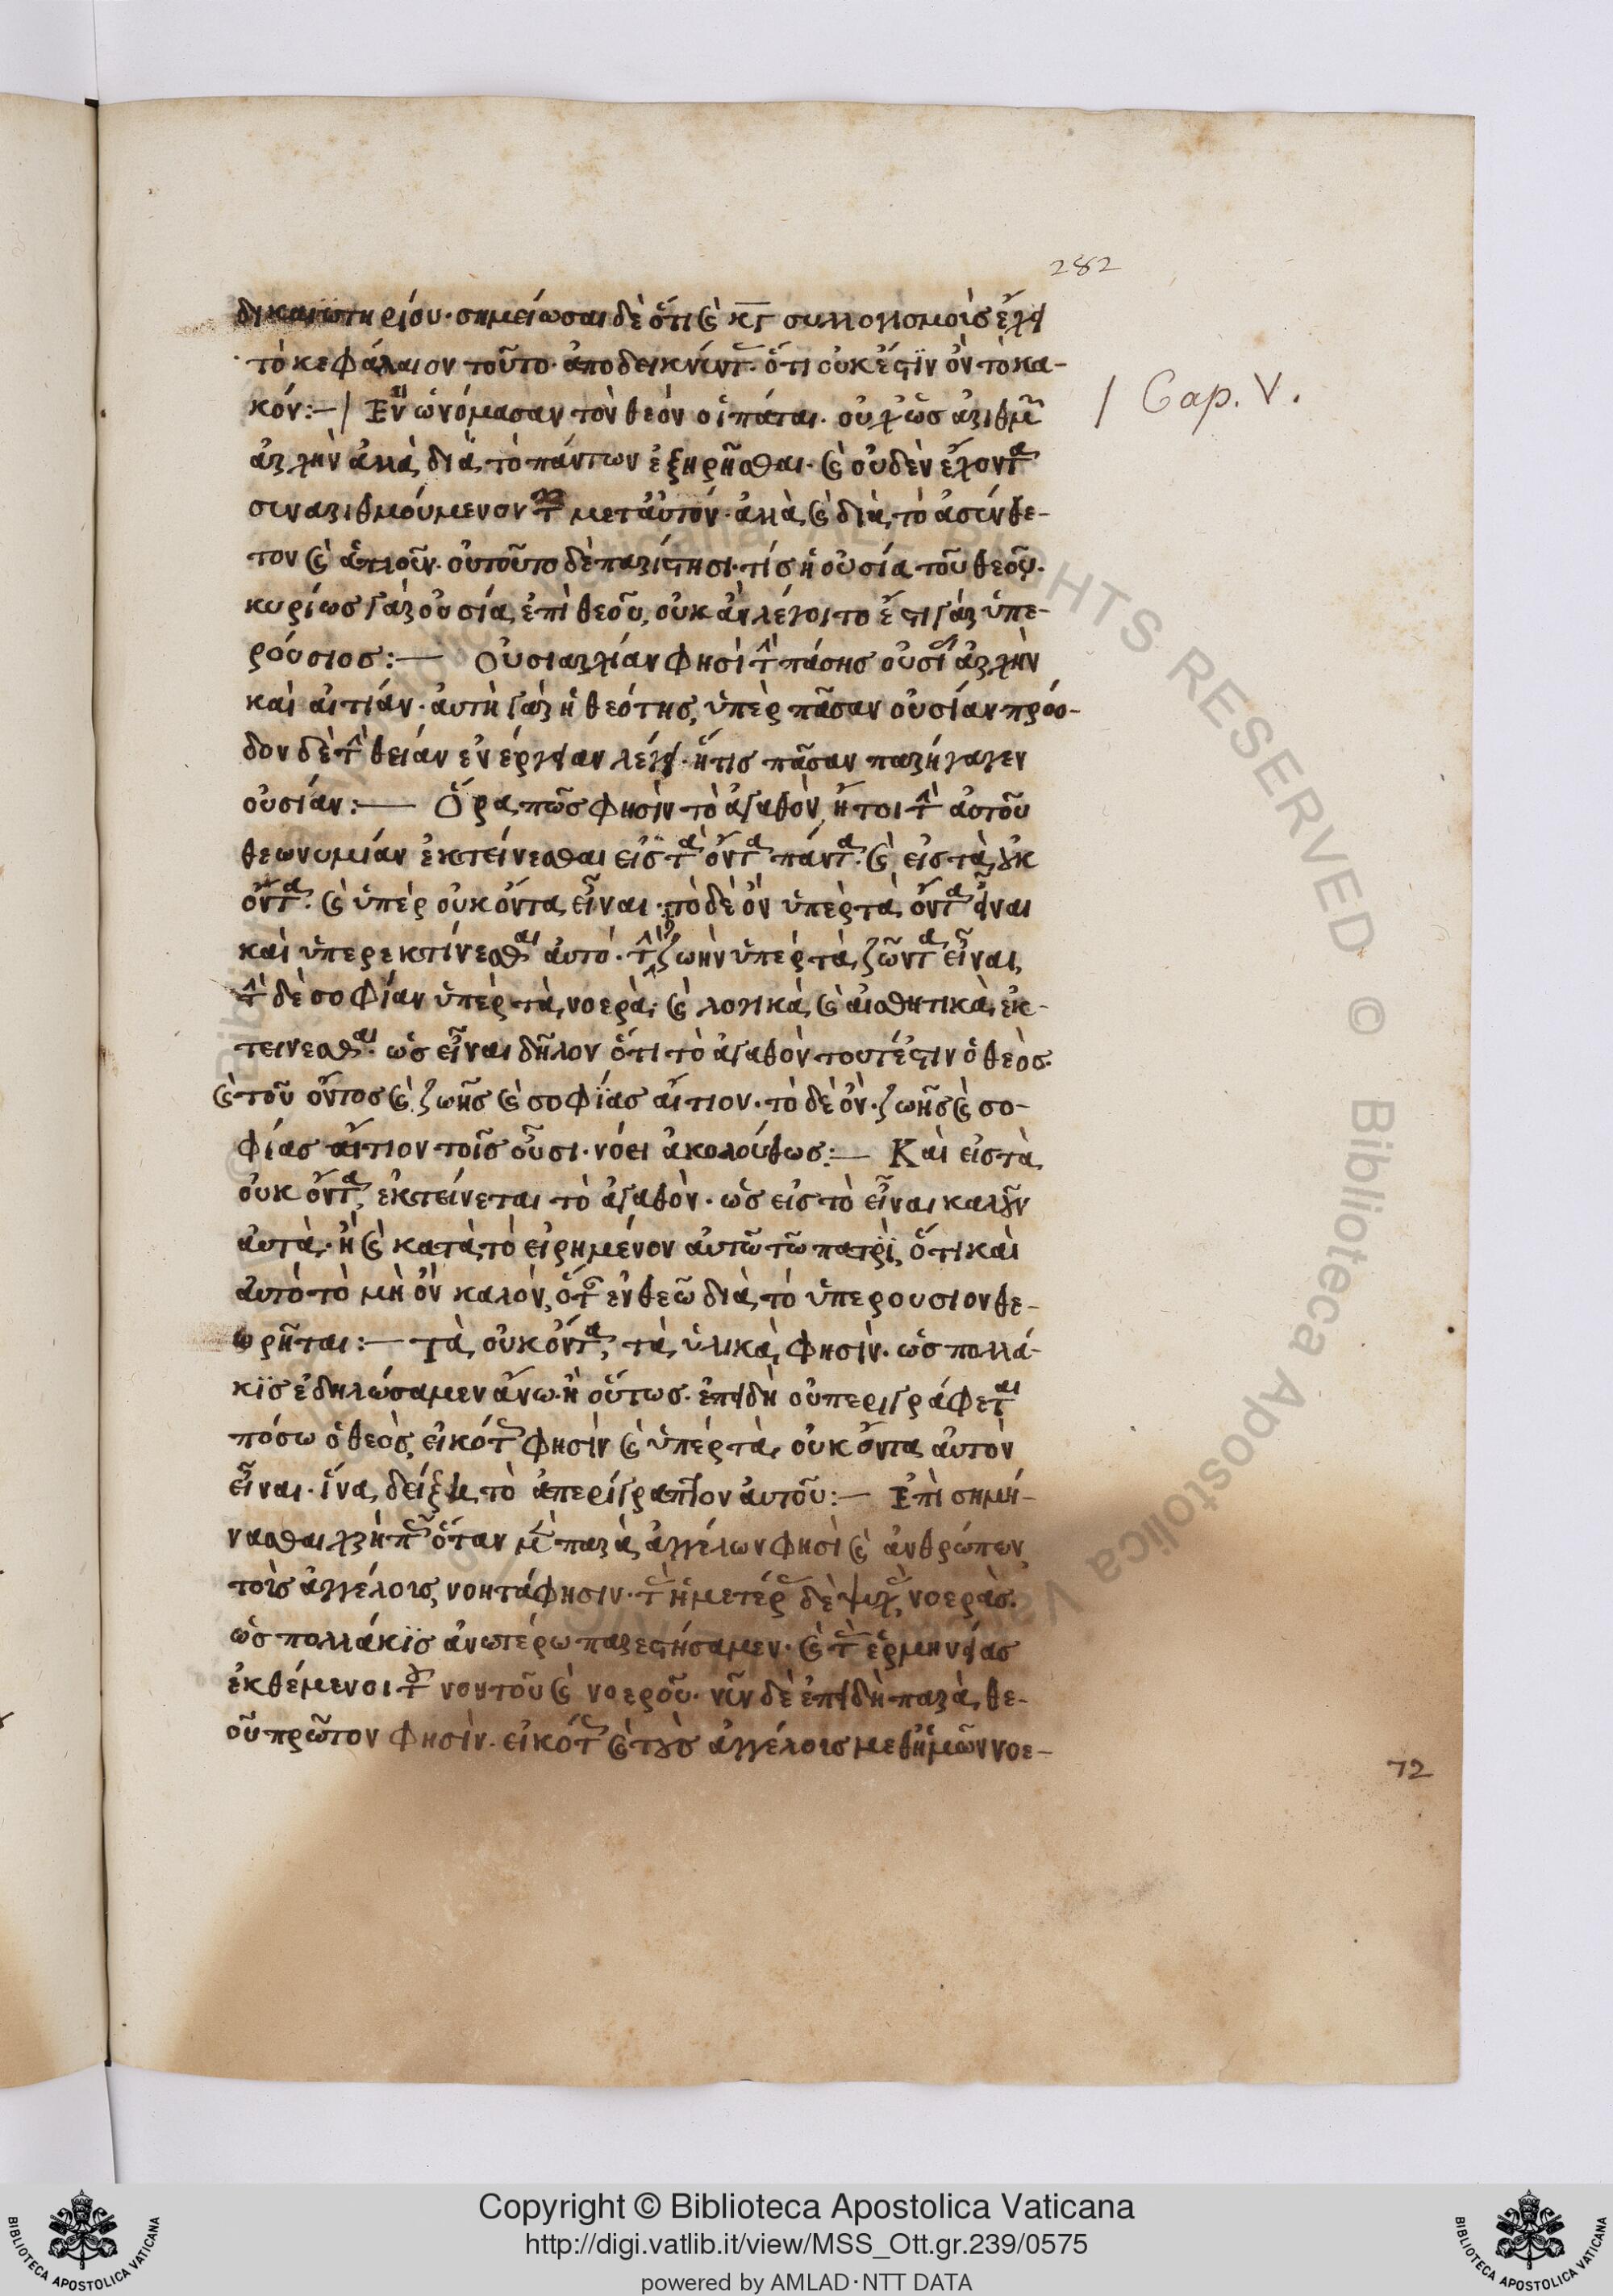 282
δικαιωτηρίου· σημείωσαι δὲ ὅτι καὶ κγ συλλογισμοῖς ἔχει
τὸ κεφάλαιον τοῦτο· ἀποδεικνύντ· ὅτι οὐκ ἔστιν ὂν τὸ κα-
κόν:—/ Ἓν ὠνόμασαν τὸν θεὸν οἱ πάται· οὐχ ὡς ἀριθμ
/ Cap. V.
ἀρχὴν ἀλλὰ διὰ τὸ πάντων ἐξηρῆσθαι· καὶ οὐδὲν ἔχοντα
συναριθμούμενον μετ αὐτόν· ἀλλὰ καὶ διὰ τὸ ἀσύνθε-
τον καὶ ἁπλοῦν· οὐ τοῦτο δὲ παρίστησι· τίς ἡ οὐσία τοῦ θεοῦ·
κυρίως γὰρ οὐσία ἐπὶ θεοῦ, οὐκ ἂν λέγοιτο ἔστι γὰρ ὑπε-
ρούσιος:— Οὐσιαρχίαν φησὶ τὴν πάσης οὐσίας ἀρχὴν
καὶ αἰτίαν· αὐτὴ γὰρ ἡ θεότης, ὑπὲρ πᾶσαν οὐσίαν πρόο-
δον δὲ τὴν θείαν ἐνέργειαν λέγει· ἥτις πᾶσαν παρήγαγεν
οὐσίαν:— Ὅρα πῶς φησὶν τὸ ἀγαθὸν, ἤτοι τὴν ἀυτοῦ
θεωνυμίαν ἐκτείνεσθαι εἰς τὰ ὄντα πάντα· καὶ εἰς τὰ οὐκ
ὄντα· καὶ ὑπὲρ οὐκ ὄντα εἶναι· τὸ δὲ ὂν ὑπὲρ τὰ ὄντα εἶναι
καὶ ὑπερεκτίνεσθαι αὐτό· τὴν ζωὴν ὑπὲρ τὰ ζῶντα εἶναι,
τὴν δὲ σοφίαν ὑπὲρ τὰ νοερὰ· καὶ λογικὰ καὶ αἰσθητικὰ ἐκ-
τεινεσθαι· ὡς εἶναι δῆλον ὅτι τὸ ἀγαθὸν τουτέστιν ὁ θεὸς·
καὶ τοῦ ὄντος καὶ ζωῆς καὶ σοφίας αἴτιον· τὸ δὲ ὂν· ζωῆς καὶ σο-
φίας αἴτιον τοῖς οὖσι· νόει ἀκολούθως:— Καὶ εἰς τὰ
οὐκ ὄντα, ἐκτείνεται τὸ ἀγαθὸν· ὡς εἰς τὸ εἶναι καλοῦν
αὐτὰ· ἢ καὶ κατὰ τὸ εἰρημένον αὐτῶ τῶ πατρὶ, ὅτι καὶ
αὐτὸ τὸ μὴ ὂν καλὸν, ὅτ ἐν θεῶ διὰ τὸ ὑπερουσιον θε-
ωρῆται:— Τὰ οὐκ ὄντα, τὰ ὑλικὰ φησὶν· ὡς πολλά-
κις ἐδηλώσαμεν ἄνω· ἢ οὕτως· ἐπειδὴ οὐ περιγράφεται
πόσω ὁ θεὸς, εἰκότως φησὶν καὶ ὑπὲρ τὰ οὐκ ὄντα αὐτὸν
εἶναι· ἵνα δείξη τὸ ἀπερίγραπτον αὐτοῦ:— Ἐπὶ σημή-
νασθαι χρὴ πῶς ὅταν μὲν παρὰ ἀγγέλων φησὶ καὶ ἀνθρώπων
τοῖς ἀγγέλοις, νοητά φησιν· τὰς ἡμετέρας δὲ ψυχὰς, νοεράς·
ὡς πολλάκις ἀνωτέρω παρεστήσαμεν· καὶ τὰς ἑρμηνείας
ἐκθέμενοι τοῦ νοητοῦ καὶ νοεροῦ· νῦν δὲ ἐπειδὴ παρὰ θε-
οῦ πρῶτον φησὶν· εἰκότως καὶ τοὺς ἀγγέλοις μεθ ἡμῶν νοε-
72
Copyright © Biblioteca Apostolica Vaticana
http://digi.vatlib.it/view/MSS_Ott.gr.239/0575
powered by AMLAD·NTT DATA